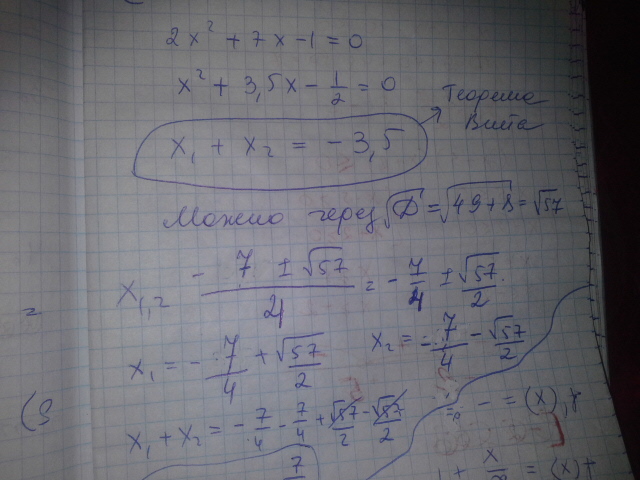 2x² + 7x - 1 = 0
x² + 3,5x - 1/2 = 0
x₁ + x₂ = -3,5
Теорема
Виета
Можно через √D = √49+8 = √57
x₁,₂ = (-7 ± √57)/4 = -7/4 ± √57/2
x₁ = -7/4 + √57/2
x₂ = -7/4 - √57/2
x₁ + x₂ = -7/4 - 7/4 + √57/2 - √57/2
7